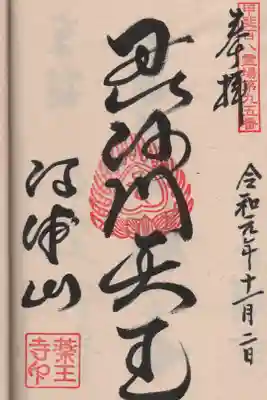 甲斐百八霊場第九五番
奉拝
令和元年十一月二日
毘沙門天王
河浦山
薬王寺印